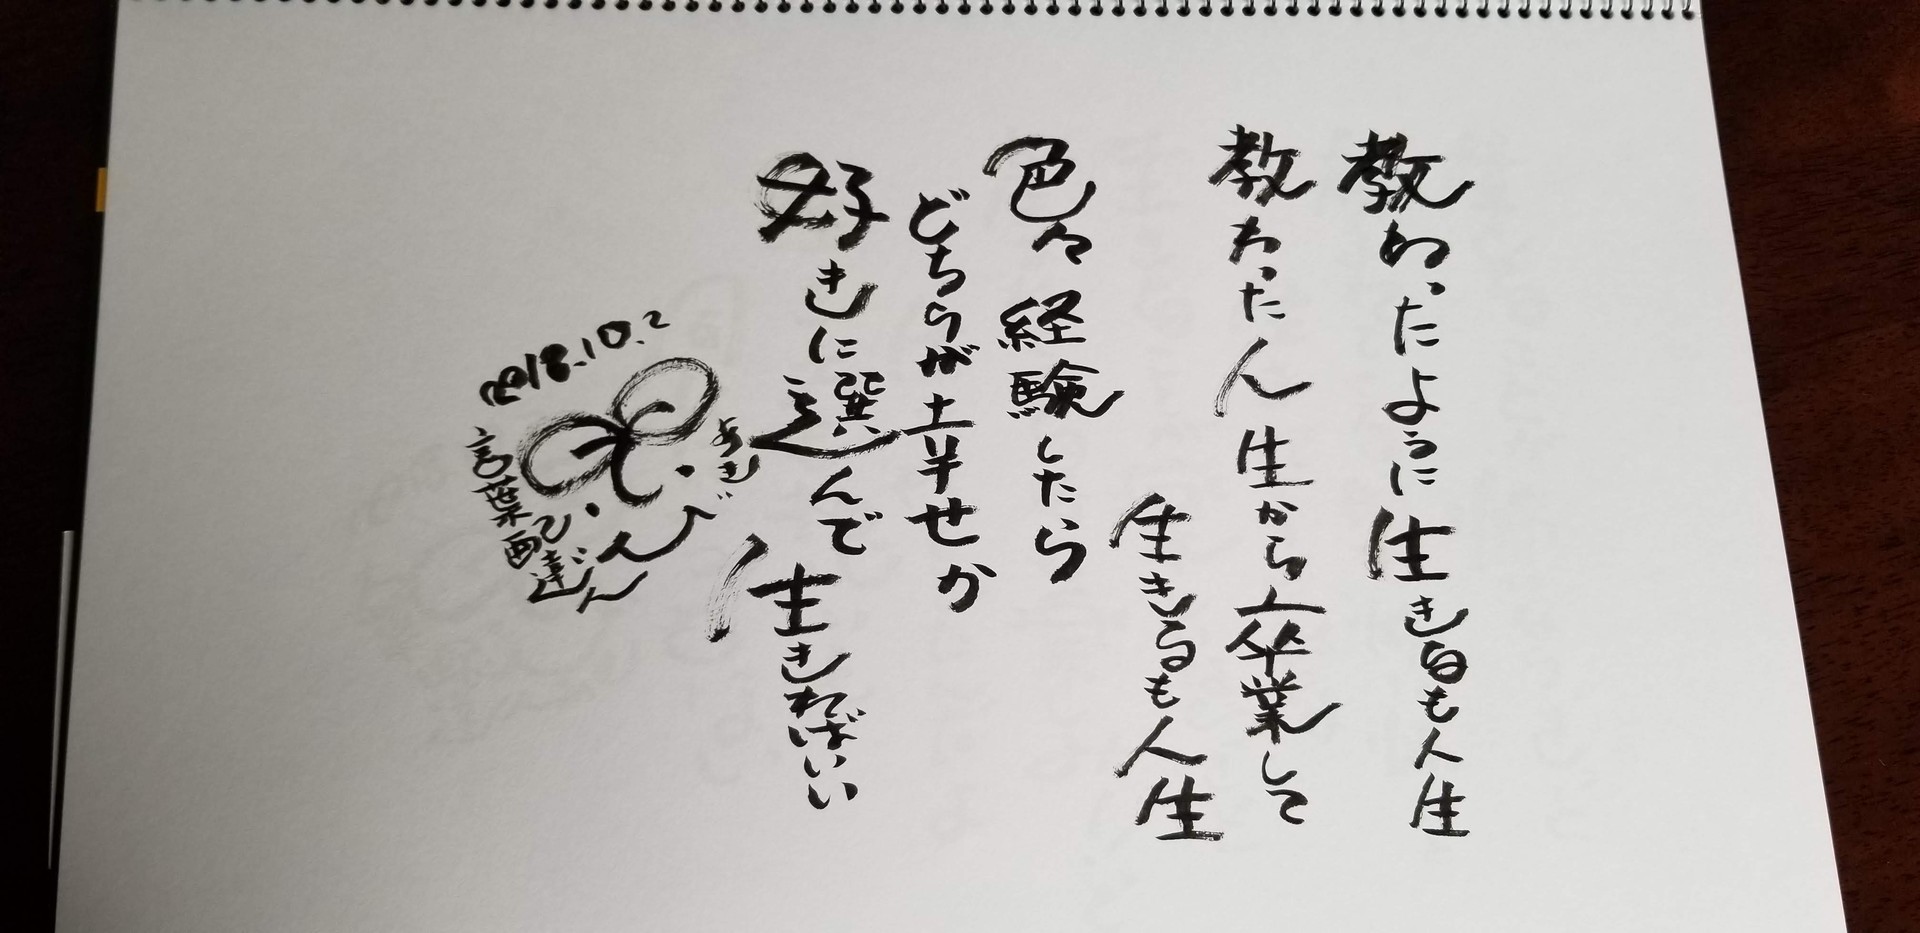 教わったように生きるも人生
教わった人生から卒業して
生きるも人生
色々経験したら
どちらが幸せか
好きに選んで生きればいい
2018.10.2
言葉配達